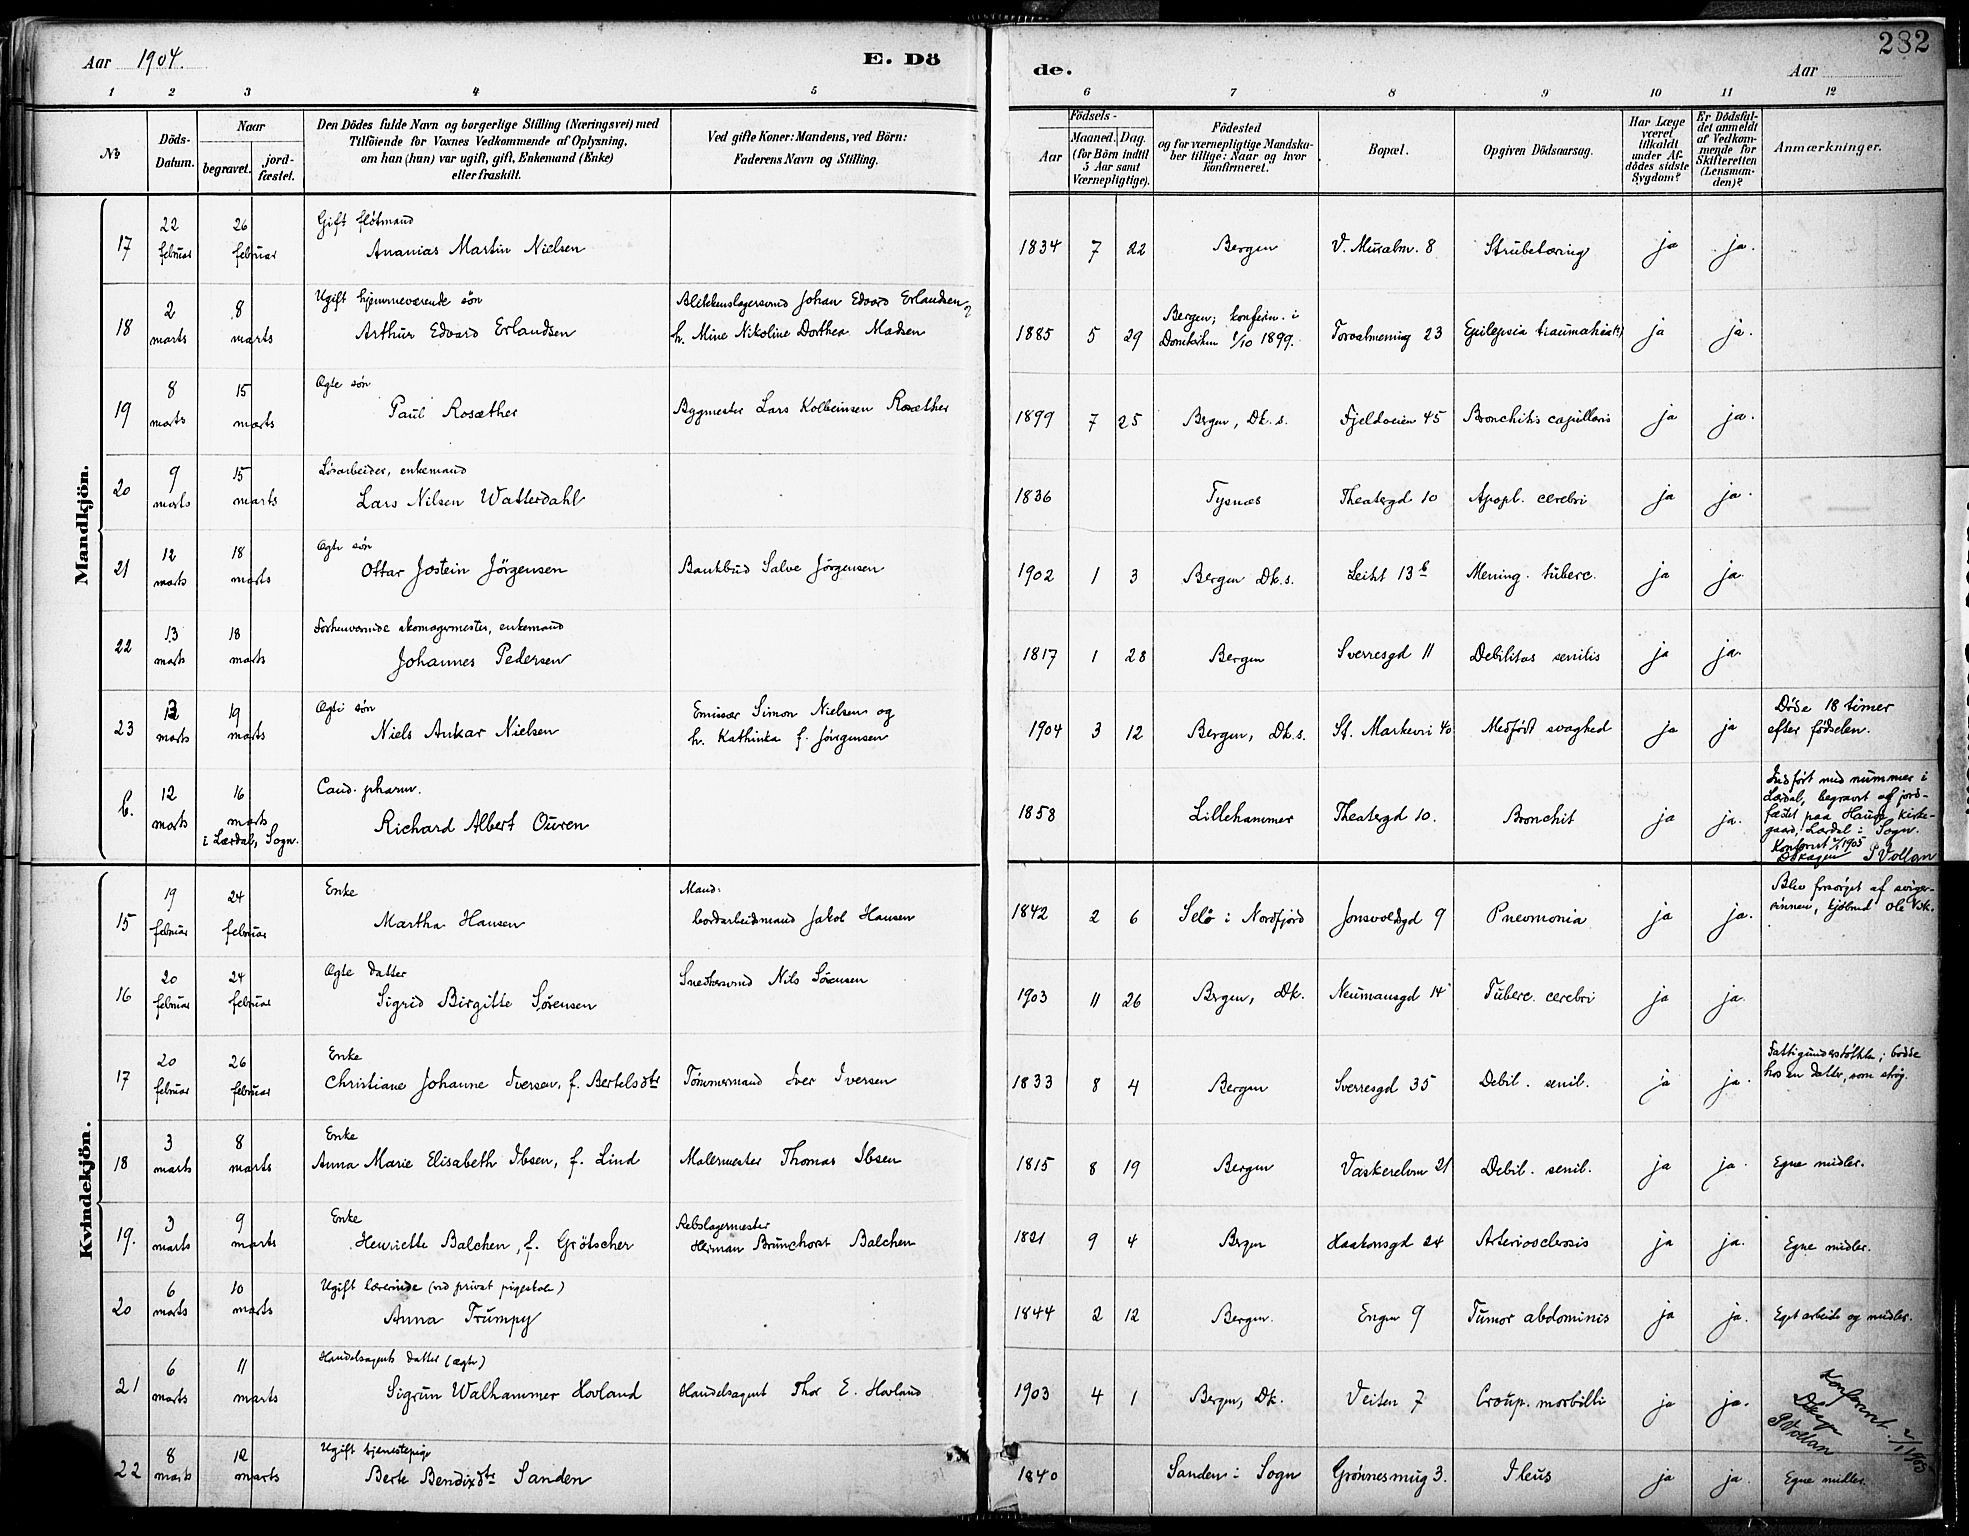 282
Aar 1904.
E. Dö
de.
Aar
1 2 3 4 5 6 7 8 9 10 11 12
No
Döds-Datum.
Naar
begravet.
jord-fæstet.
Den Dödes fulde Navn og borgerlige Stilling (Næringsvei) med
Tilföiende for Voxnes Vedkommende af Oplysning,
om han (hun) var ugift, gift, Enkemand (Enke)
eller fraskilt.
Ved gifte Koner: Mandens, ved Börn:
Faderens Navn og Stilling.
Födsels-
Aar
Maaned. Dag.
(for Börn indtil
5 Aar samt
Værnepligtige).
Födested
og for værnepligtige Mandska-
ber tillige: Naar og hvor
konfirmeret.
Bopæl.
Opgiven Dödsaarsag.
Har Læge
været
tilkaldt
under Af-
dödes sidste
Sygdom?
Er Dödsfal-
det anmeldt
af Vedkom-
mende for
Skifteretten
(Lensman-
den)?
Anmærkninger.
Mandkjön.
17 22 februar 26 februar Gift fløtmand
Ananias Martin Nielsen 1834 7 22 Bergen V. Muralm. 8 Strubetæring ja ja.
18 2 marts 8 marts Ugift hjemmeværende søn
Arthur Edvard Erlandsen
Blikkenslagersvend Johan Edvard Erlandsen
h. Mine Nikoline Dorthea Madsen
1885 5 29 Bergen; konfirm. i
Domkirken 1/10 1899. Torvalmening 23 Epilepsia traumatica ja ja.
19 8 marts 15 marts Ægte søn
Paul Rosæther Bygmester Lars Kolbeinsen Rosæther 1899 7 25 Bergen, Dk. s. Fjeldveien 45 Bronchitis capillaris ja ja.
20 9 marts 15 marts Løsarbeider, enkemand
Lars Nilsen Watterdahl 1836 Tysnæs Theatergd 10 Apopl. cerebri ja ja.
21 12 marts 18 marts Ægte søn
Ottar Jostein Jörgensen Bankbud Salve Jörgensen 1902 1 3 Bergen Dk. s. Leitet 13 b Mening. tuberc. ja ja.
22 13 marts 18 marts Forhenværende skomagermester, enkemand
Johannes Pedersen 1817 1 28 Bergen Sverresgd 11 Debilitas senilis ja ja.
23 13 marts 19 marts Ægte søn
Niels Ankar Nielsen
Emissær Simon Nielsen og
h. Kathinka f. Jörgensen
1904 3 12 Bergen, Dk. s. St. Markevei 40 Medfødt svaghed ja ja
Døde 18 timer
efter fødselen.
12 marts 16 marts
i Lærdal, Sogn.
Cand. pharm.
Richard Albert Ouren 1858 Lillehammer Theatergd 10. Bronchit ja ja.
Indført med nummer i
Lærdal, begravet og jord-
fæstet paa Hauge kirke-
gaard, Lærdal i Sogn.
Konfereret 2/1 1905
P Vollan
Kvindekjön.
15 19 februar 24 februar Enke
Martha Hansen
Mand:
bordarbeidsmand Jakob Hansen
1842 2 6 Selø i Nordfjord Jonsvoldgd 9 Pneumonia ja ja.
Blev forsørget af sviger-
sønnen, kjøbmd Ole Vik.
16 20 februar 24 februar Ægte datter
Sigrid Birgitte Sørensen Snedkersvend Nils Sørensen 1903 11 26 Bergen, Dk. Neumansgd 14 Tuberc. cerebri ja ja.
17 20 februar 26 februar Enke
Christiane Johanne Iversen, f. Bertelsdtr Tømmermand Iver Iversen 1833 8 4 Bergen Sverresgd 35 Debil. senil. ja ja.
Fattigunderstøttet; bodde
hos en datter, som strøg.
18 3 marts 8 marts Enke
Anna Marie Elisabeth Ibsen, f. Lind Malermester Thomas Ibsen 1815 8 19 Bergen Vaskerelven 21 Debil. senil. ja ja. Egne midler.
19. 3 marts 9 marts Enke
Henriette Balchen, f. Grötscher
Rebslagermester
Herman Brunchorst Balchen
1821 9 4 Bergen Haakonsgd 24 Arteriosclerosis ja ja. Egne midler.
20 6 marts 10 marts Ugift lærerinde (ved privat pigeskole)
Anna Trumpy 1844 2 12 Bergen. Engen 9 Tumor abdominis ja ja. Eget arbeide og midler.
21 6 marts 11 marts Handelsagents datter (ægte)
Sigrun Walhammer Hovland Handelsagent Thor E. Hovland 1903 4 1 Bergen, Dk. Veiten 7 Croup. morbilli ja ja.
Konfereret 2/1 1905
P Vollan
22 8 marts 12 marts Ugift tjenestepige
Berte Bendixdtr Sanden 1840 Sanden i Sogn Grønnesmug 3. Ileus ja ja. Egne midler.